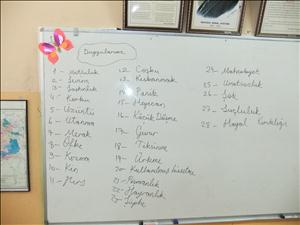 Duygularımız
1- Mutluluk
2- Sinir
3- Şaşkınlık
4- Korku
5- Üzüntü
6- Utanma
7- Merak
8- Öfke
9- Kızma
10- Kin
11- Hırs
12- Coşku
13- Kıskanmak
14- Panik
15- Heyecan
16- Küçük Düşme
17- Gurur
18- Tiksinme
19- Ürkme
20- Kullanılmış hissetme
21- Pişmanlık
22- Hayranlık
23- Şüphe
24- Mahcubiyet
25- Umutsuzluk
26- Şok
27- Suçluluk
28- Hayal Kırıklığı